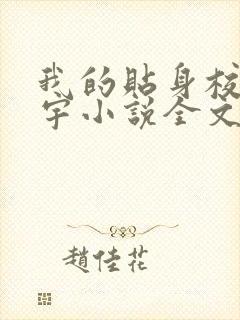 我的貼身校
宇小說全文
趙佳花